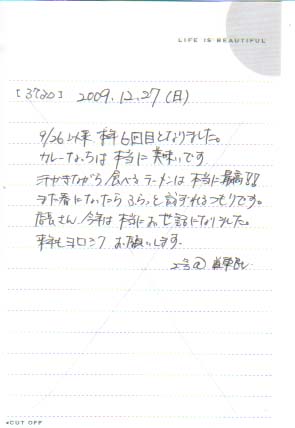 LIFE IS BEAUTIFUL
2009.12.27(日)
9/26以来 本年6回目となりました。
カレーなっちは本当に美味いです
汗かきながら食べるラーメンは本当に最高!!
になったら ふらっと訪ずれるつもりです。
店長さん、今年は本当にお世話になりました。
来年もヨロシク お願いします。
CUT OFF